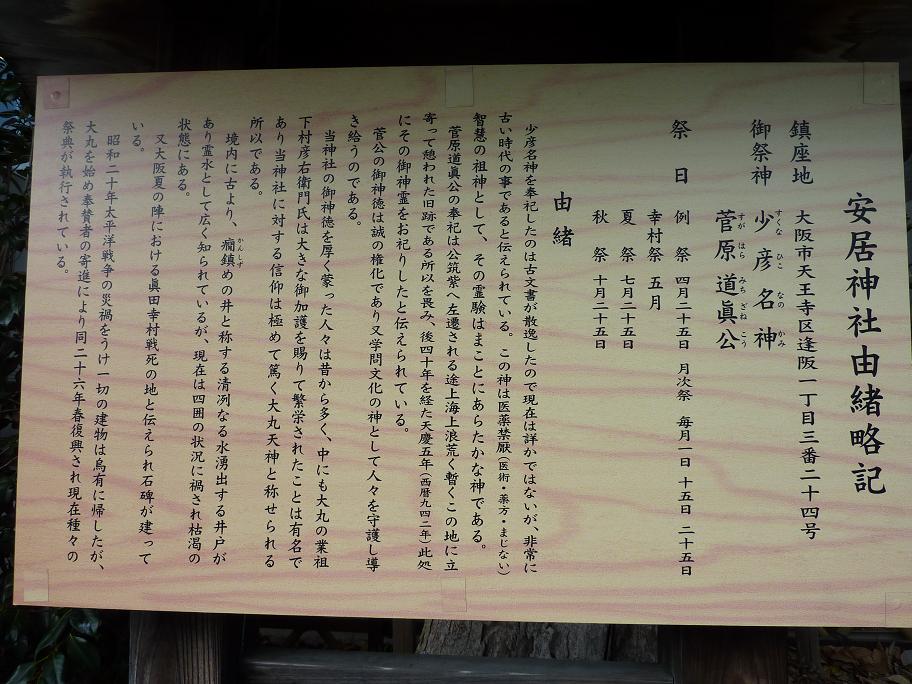 安居神社由緒略記
鎮座地 大阪市天王寺区逢阪一丁目三番二十四号
御祭神 少彦名神
すくな ひこ なの かみ
菅原道眞公
すが はら みち ざね こう
祭日 例祭 四月二十五日 月次祭 毎月一日 十五日 二十五日
幸村祭 五月
夏祭 七月二十五日
秋祭 十月二十五日
由緒
少彦名神を奉祀したのは古文書が散逸したので現在は詳かではないが、非常に
古い時代の事であると伝えられている。この神は医薬禁厭(医術・薬方・まじない)
智慧の祖神として、その霊験はまことにあらたかな神である。
菅原道眞公の奉祀は公筑紫へ左遷される途上海上浪荒く暫くこの地に立
寄って憩われた旧跡である所以を畏み、後四十年を経た天慶五年(西暦九四二年)此処
にその御神霊をお祀りしたと伝えられている。
菅公の御神徳は誠の権化であり又学問文化の神として人々を守護し導
き給うのである。
当神社の御神徳を厚く蒙った人々は昔から多く、中にも大丸の業祖
下村彦右衛門氏は大きな御加護を賜りて繁栄されたことは有名で
あり当神社に対する信仰は極めて篤く大丸天神と称せられる
所以である。
境内に古より、癇鎮めの井と称する清冽なる水湧出する井戸が
かんしず
あり霊水として広く知られているが、現在は四囲の状況に禍され枯渇の
状態にある。
又大阪夏の陣における眞田幸村戦死の地と伝えられ石碑が建って
いる。
昭和二十年太平洋戦争の災禍をうけ一切の建物は烏有に帰したが、
大丸を始め奉賛者の寄進により同二十六年春復興され現在種々の
祭典が執行されている。